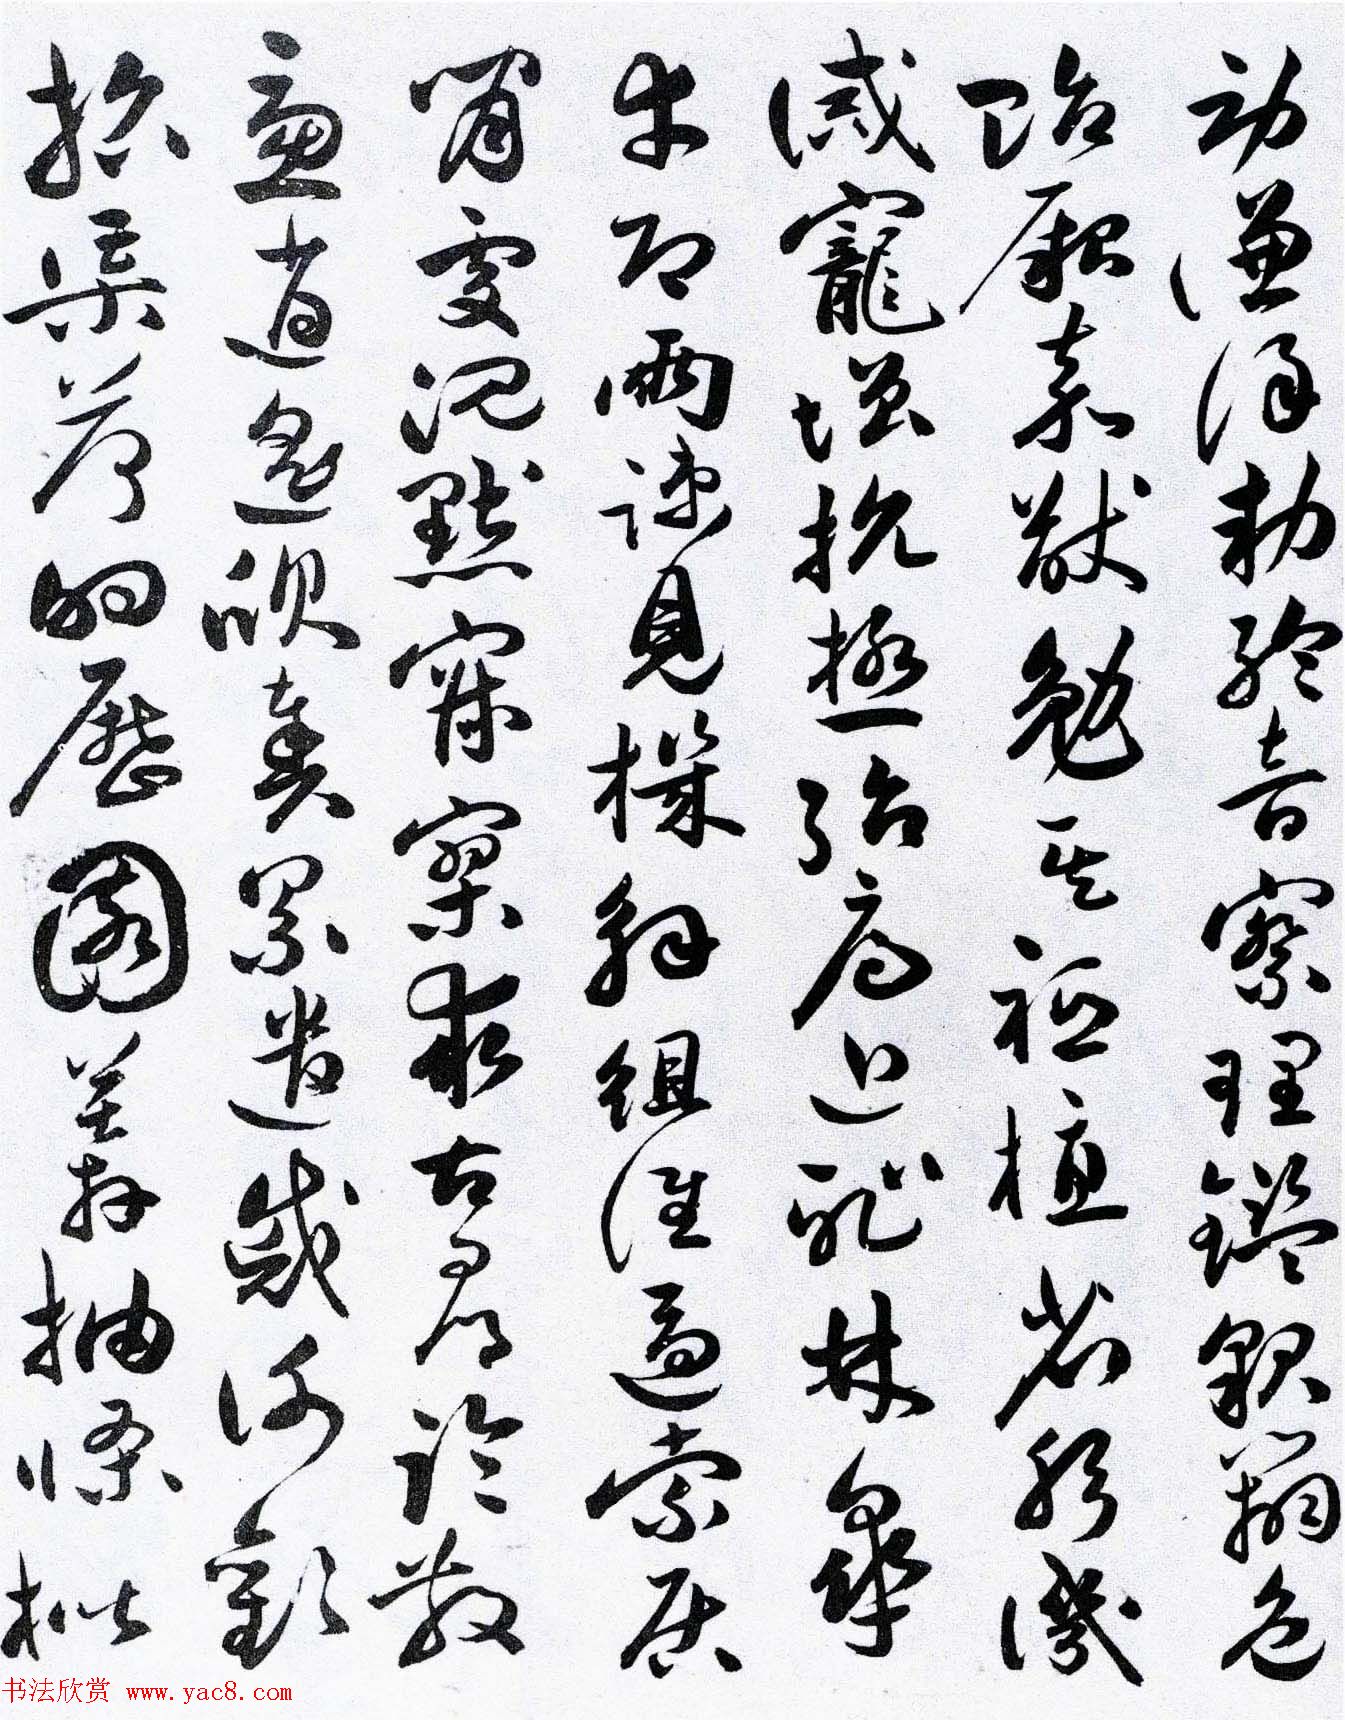 勞謙謹勅聆音察理鑑貌辨色
貽厥嘉猷勉其祗植省躬譏
誡寵增抗極殆辱近恥林皋
幸即兩疏見機解組誰逼索居
閑處沉默寂寥求古尋論散
慮逍遙欣奏累遣慼謝歡
招渠荷的歷園莽抽條枇
书法欣赏 www.yac8.com